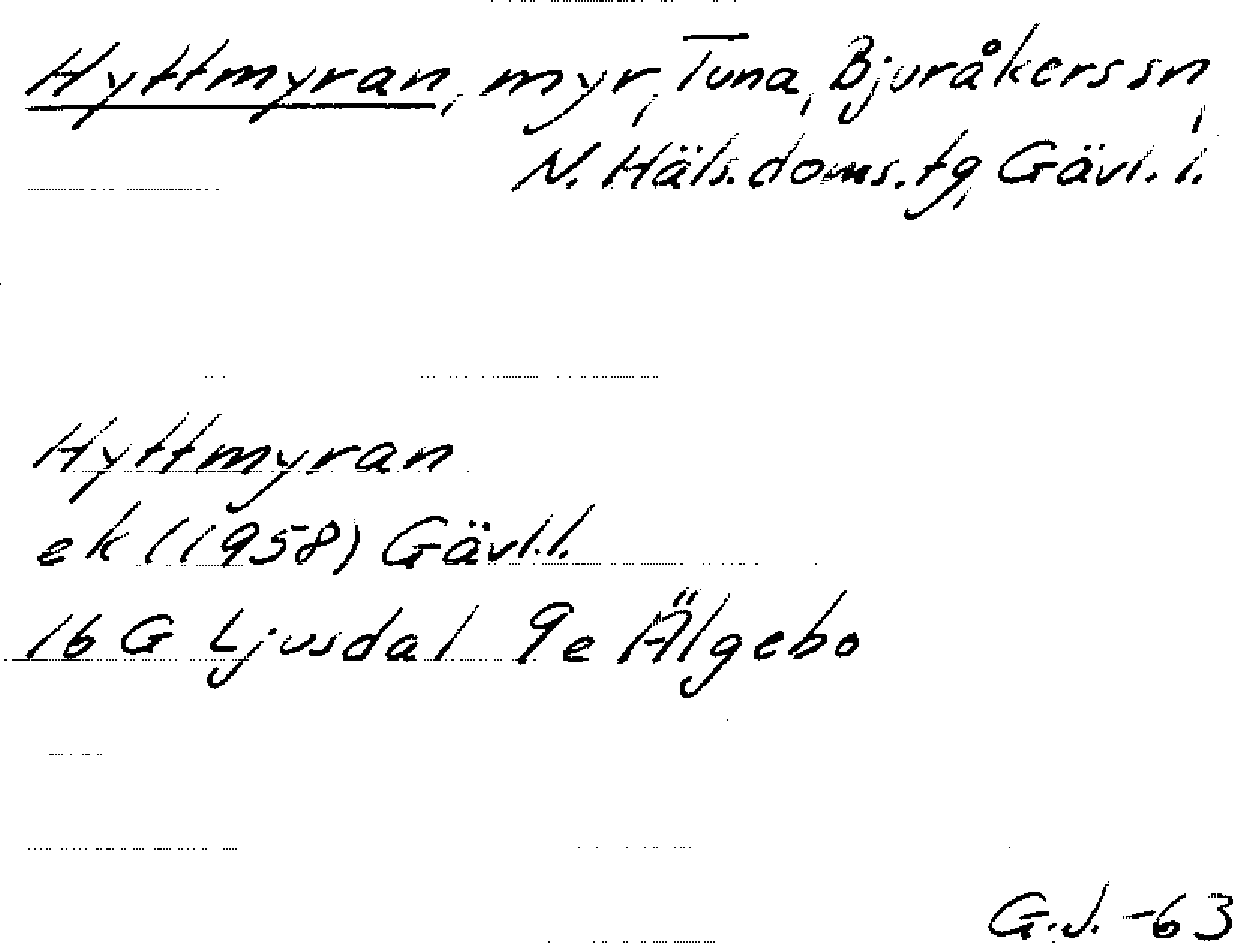 Hyttmyran, myr, Tuna, Bjuråkers sn,
N. Häls. doms. tg, Gävl. l.
Hyttmyran
ek (1958) Gävl. l.
16 G Ljusdal 9e Älgebo
G.J. -63